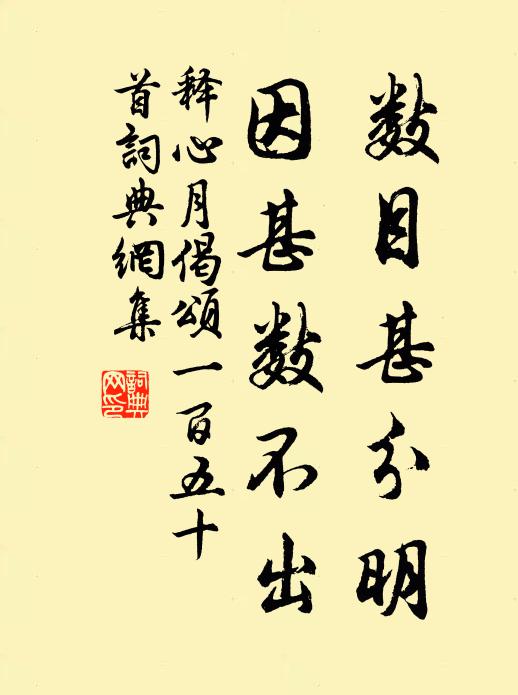 数目甚分明
因甚数不出
释心月偈頌一百五十
首詞典網集
詞典
网印